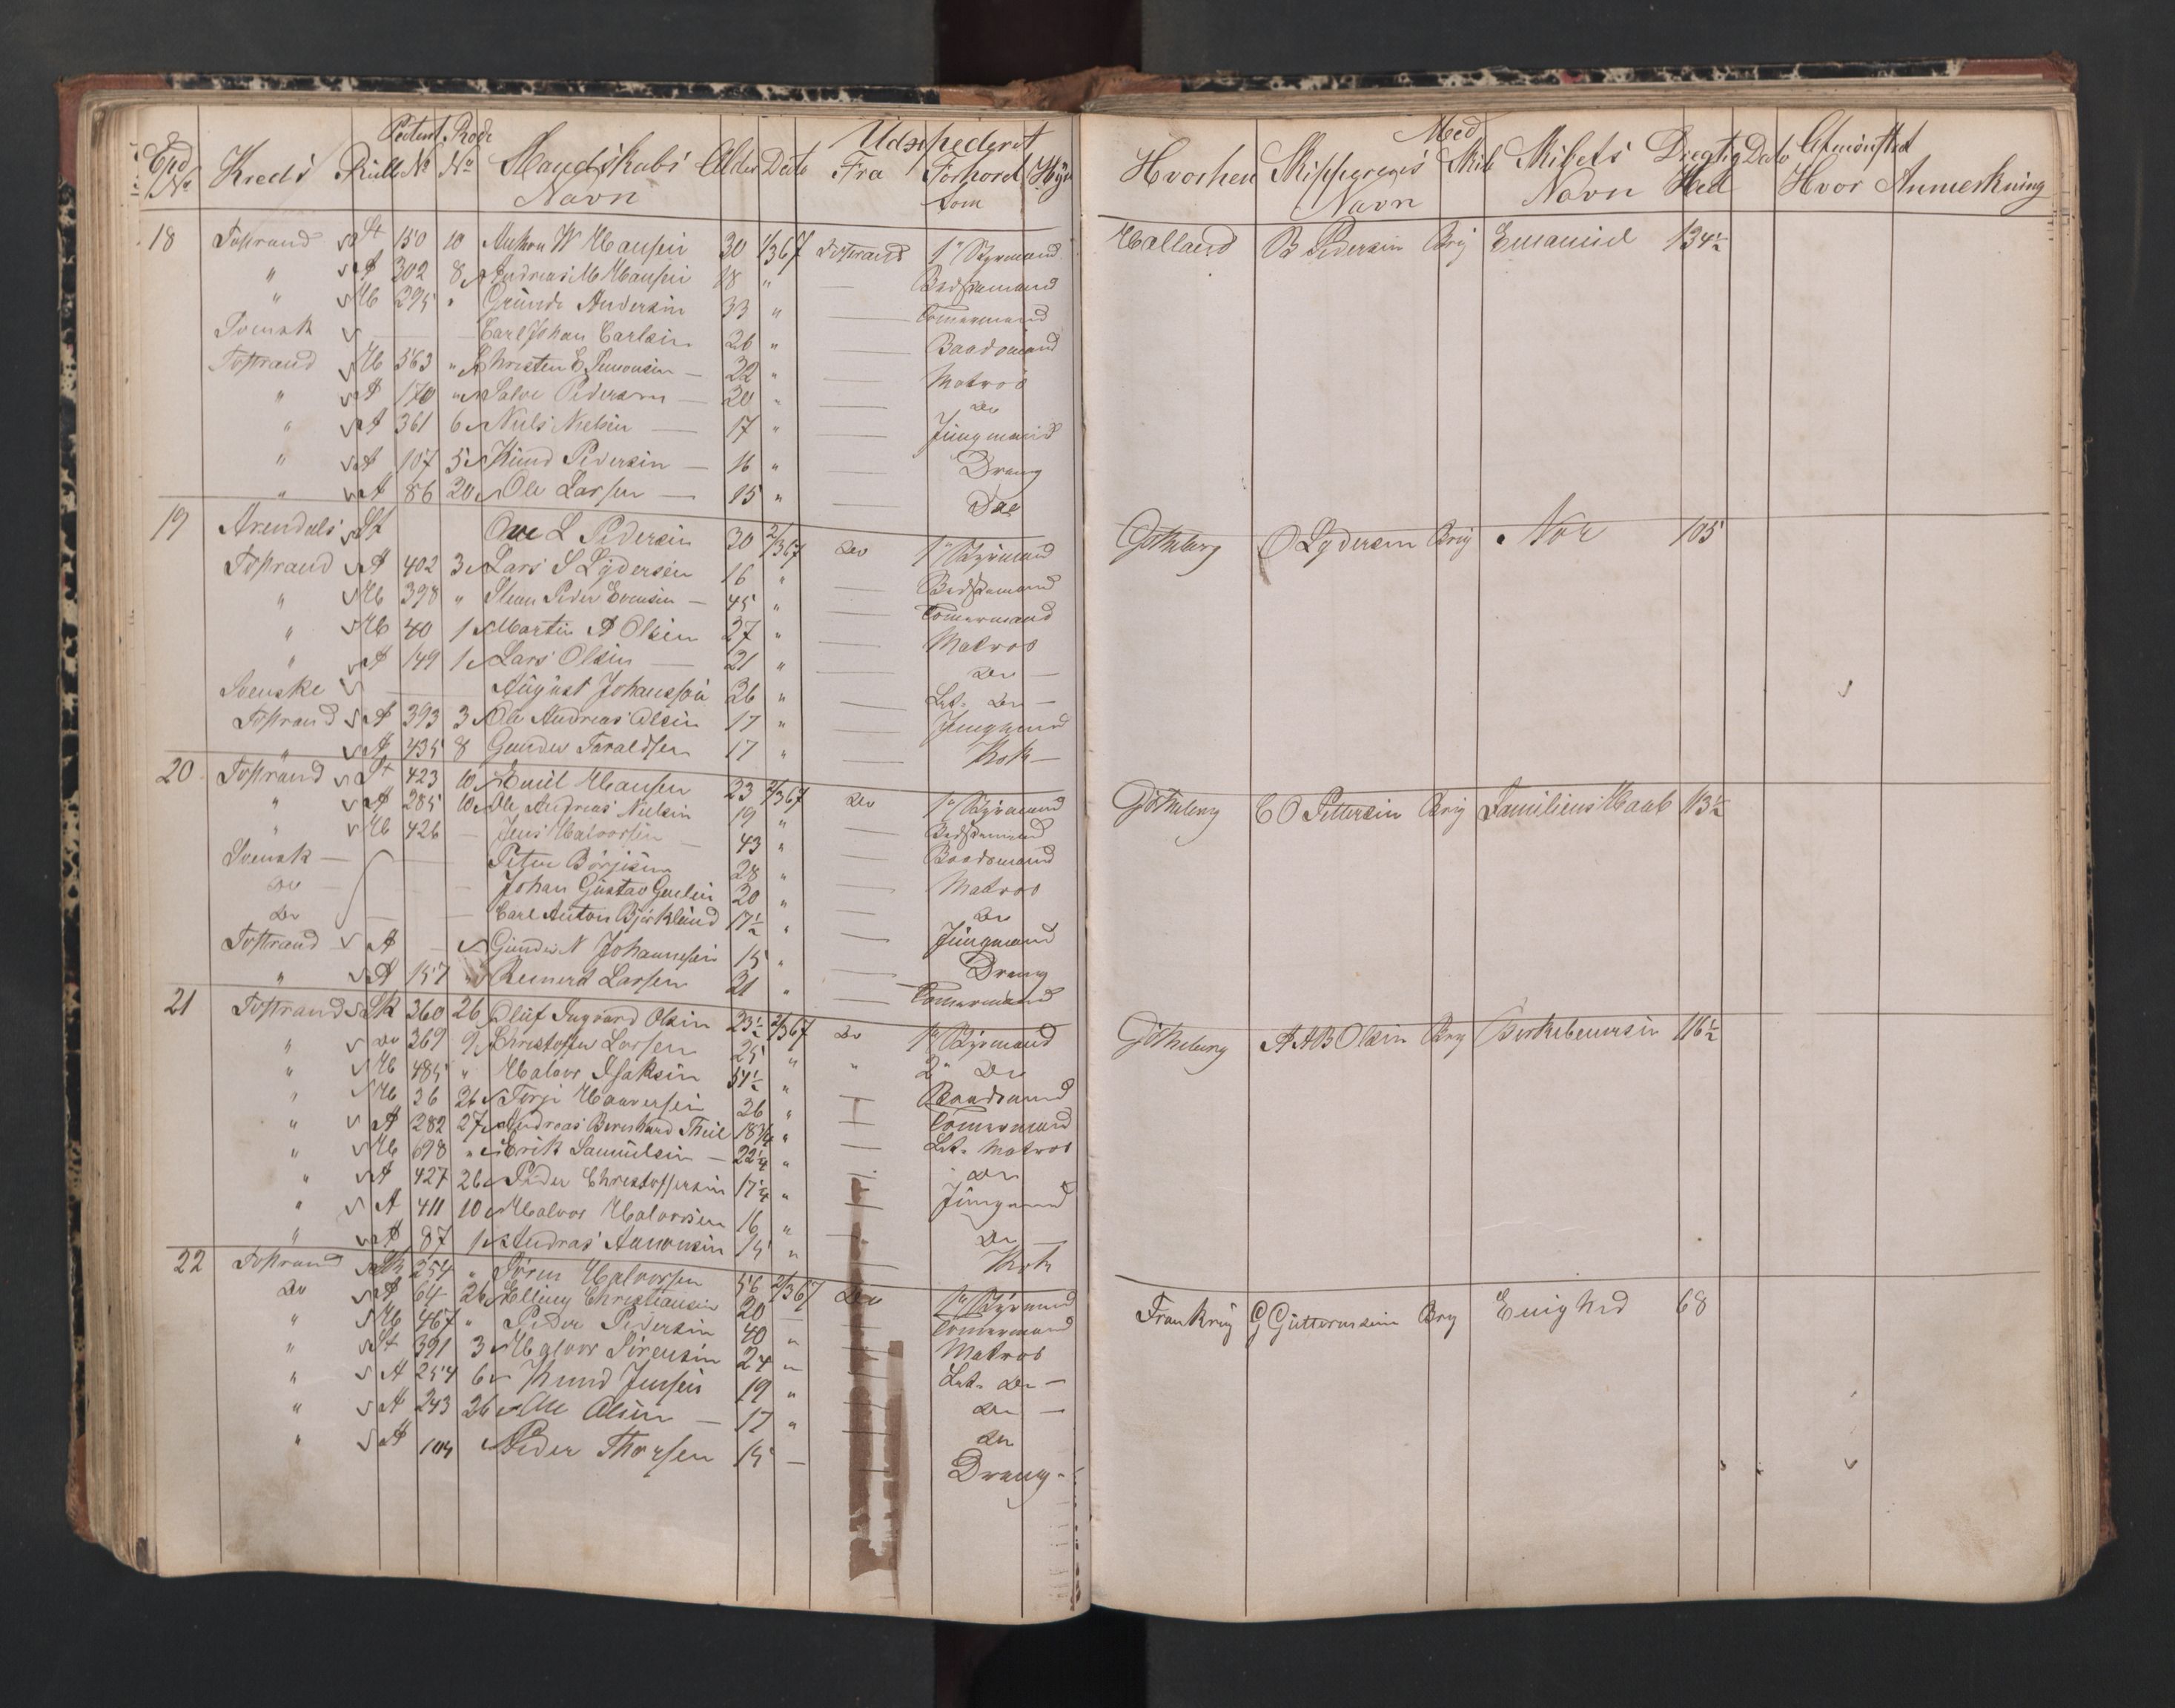 Exp No Kreds Rulle Patent No Rode No Mandskabs Navn Alder Dato Udexpederet Fra Forhoret som Hyre
Hvorhen Skipperens Navn Med Skib Skibets Navn Drægtighed Dato Afmönstret Hvor Anmerkning
18 Tostrand St 150 10 W Hansen 30 1/3 67 Tostrand 1e Styrmand Holland B Pedersen Brig Emanuel 134½
" A 302 8 Andreas M Hansen 18 " — Bedstemand
" Hb 295 " Gunde Andersen 33 " — Tömermand
Svensk — Carl Johan Carlsen 26 " — Baadsmand
Tostrand Hb 563 " Christen E Simonsen — 22 " — Matros
" A 170 " Salve Pedersen — 20 " — Do
" A 361 6 Niels Nielsen — 17 " — Jungmand
" A 107 5 Knud Pedersen — 16 " — Dreng
" A 86 20 Ole Larsen — 15 " — Do
19 Arendals St Ove L Pedersen 30 2/3 67 Do 1e Styrmand Götheborg O Lydersen Brig Nor 105
Tostrand A 402 3 Lars S Lydersen 16 " — Bedstemand
" Hb 398 " Peder Evensen — 45 " — Tömermand
" Hb 40 1 Martin A Olsen 27 " — Matros
" A 149 1 Lars Olsen — 21 " — Do —
Svenske — August Johansson 26 " — Let. Do —
Tostrand A 393 3 Ole Andreas Olsen 17 " — Jungmand
" A 435 8 Gunder Taraldsen 17 " — Kok —
20 Tostrand St 423 10 Emil Hansen 23 2/3 67 Do 1e Styrmand Götheborg C O Pettersen Brig Familiens Haab 113½
" A 285 10 Ole Andreas Nielsen 19 " — Bedstemand
" Hb 426 — Jens Halvorsen 43 " — Baadsmand
Svensk — Peter Börjesen 28 " — Matros
Do — Johan Gustav 20 " — Do
Do — Carl Anton Björklund 17½ " — Jungmand
Tostrand A — Gunder N Johannesen 15 " — Dreng
" A 157 " Reinert Larsen 21 " — Tömermand
21 Tostrand Sk 360 26 Oluf Ingvard Olsen 23½ 2/3 67 Do 1e Styrmand Götheborg A A B Olsen Brig Birkebeineren 116½
" Do 369 9 Christopher Larsen 25 " " 2e Do
" Hb 485 " Halvor Isaksen 54½ " — Baadsmand
" Hb 36 26 Terje Haaversen 26 " — Tömermand
" A 282 27 Andreas Bernhard Theil 18¾ " — Let. Matros
" Hb 698 " Erik Samuelsen — 22¼ " — Do
" A 427 26 Peder Christophersen 17¼ " — Jungmand
" A 411 10 Halvor Halvorsen 16 " — Do —
" A 87 1 Andreas Aanonsen 15 " — Kok
22 Tostrand Sk 254 " Sören Halvorsen 56 2/3 67 Do 1e Styrmand Frankrig G Guttormsen Brig Enighed 68
Do A 64 26 Elling Christiansen 20 — Tömermand
" Hb 467 " Peder Pedersen 40 " — Matros
" St 391 3 Halvor Sörensen 24 " — Let. Do —
" A 254 6 Knud Jensen 19 " — Do —
" A 243 26 Ole Olsen — 17 " — Do
" A 104 Peder Thorsen 15 — Dreng -